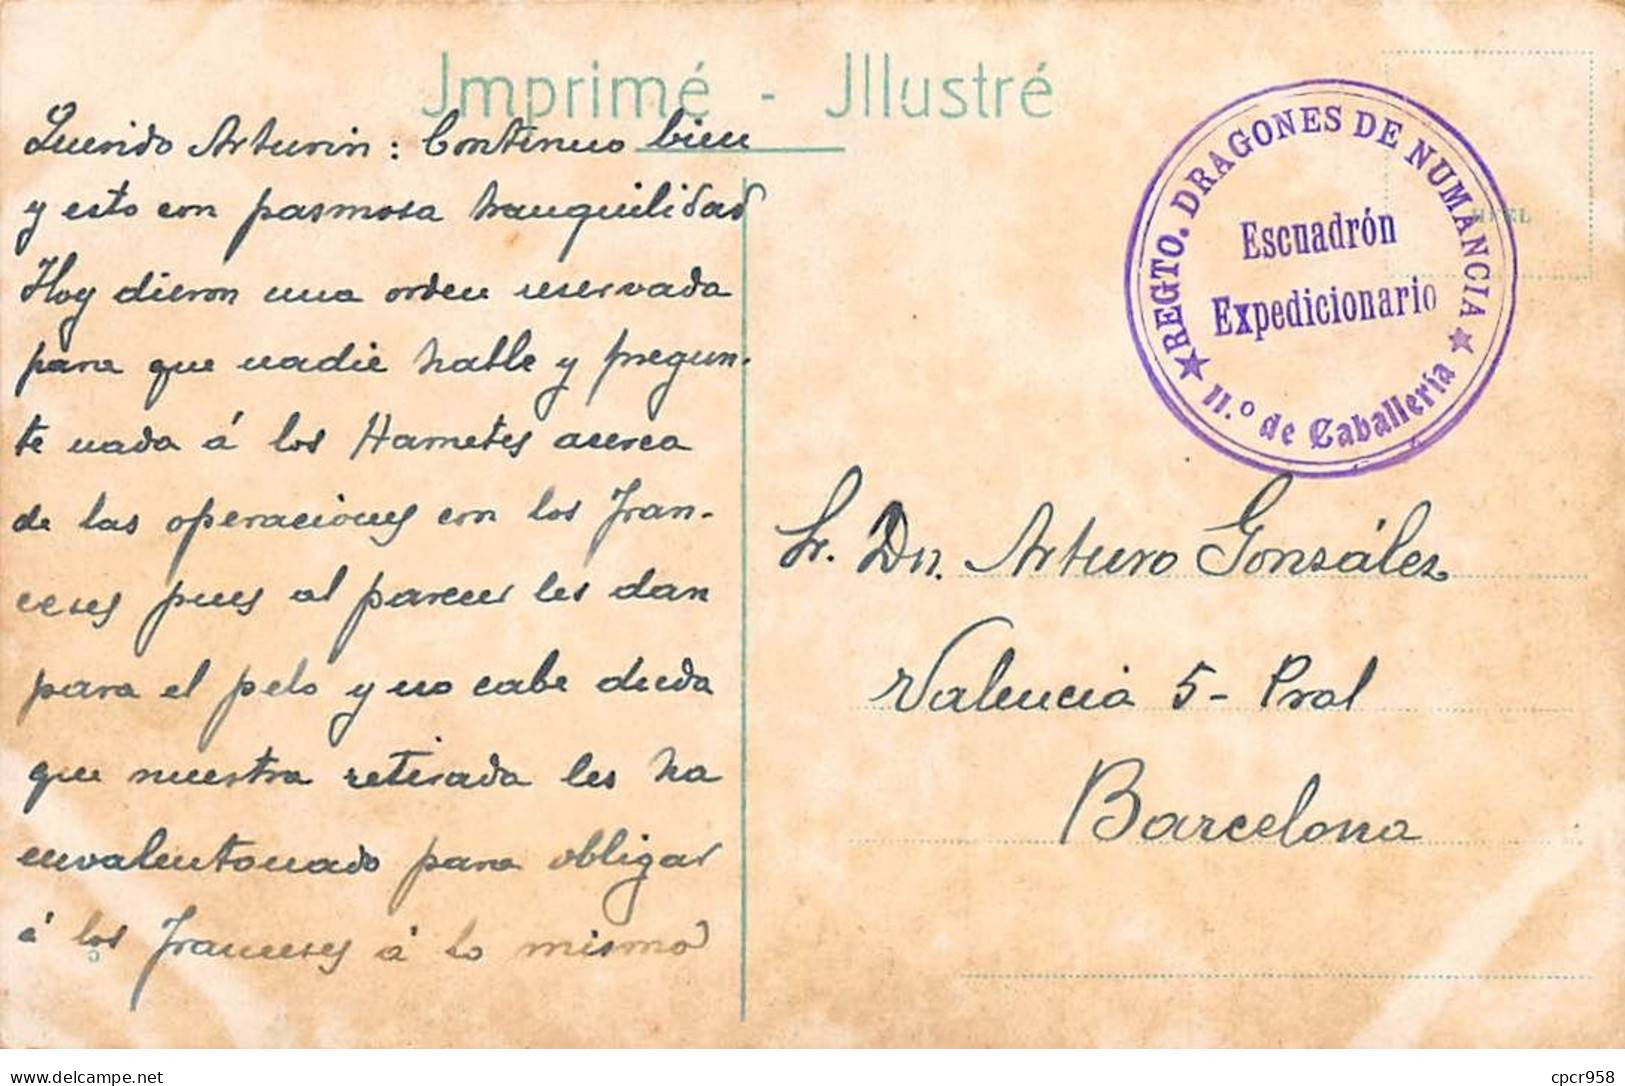 Jmprimé - Jllustré
Querido Arturin: Continuo bien
y esto con pasmosa tranquilidad
Hoy dieron una orden reservada
para que nadie hable y pregun-
te nada á los Hametes acerca
de las operaciones con los fran-
ceses pues al parecer les dan
para el pelo y no cabe duda
que nuestra retirada les ha
envalentonado para obligar
á los franceses á lo mismo
REGTO. DRAGONES DE NUMANCIA
Escuadrón
Expedicionario
11.º de Caballería
Sr. Dn. Arturo González
Valencia 5 - Pral
Barcelona
Delcampe.net
cpcr958